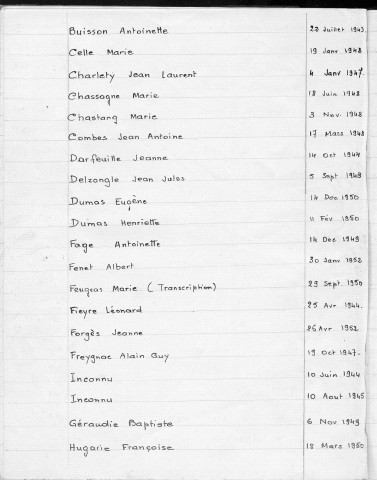 Buisson Antoinette 27 Juillet 1943
Celle Marie 19 Janv 1948
Charlety Jean Laurent 4 Janv 1947.
Chassagne Marie 18 Juin 1948
Chastang Marie 3 Nov. 1948
Combes Jean Antoine 17 Mars 1948
Darfeuille Jeanne 14 Oct 1944
Delzongle Jean Jules 5 Sept 1949
Dumas Eugène 14 Dec 1950
Dumas Henriette 11 Fév 1950
Fage Antoinette 14 Dec 1949
Fenet Albert 30 Janv 1952
Feugeas Marie (Transcription) 29 Sept. 1950
Fieyre Léonard 25 Avr 1944.
Forgès Jeanne 26 Avr 1952
Freygnac Alain Guy 19 Oct 1947.
Inconnu 10 Juin 1944
Inconnu 10 Aout 1945
Géraudie Baptiste 6 Nov 1949
Hugarie Françoise 18 Mars 1950